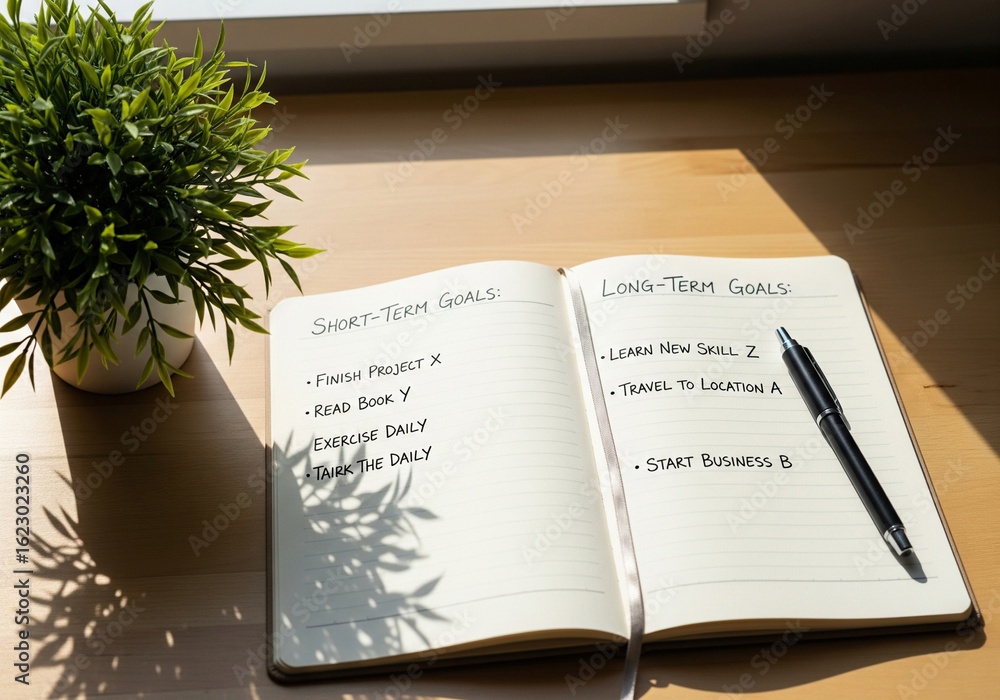 SHORT-TERM GOALS:
• FINISH PROJECT X
• READ BOOK Y
EXERCISE DAILY
• TAIRK THE DAILY
LONG-TERM GOALS:
• LEARN NEW SKILL Z
• TRAVEL TO LOCATION A
• START BUSINESS B
Adobe Stock | #1623023260
Adobe Stock